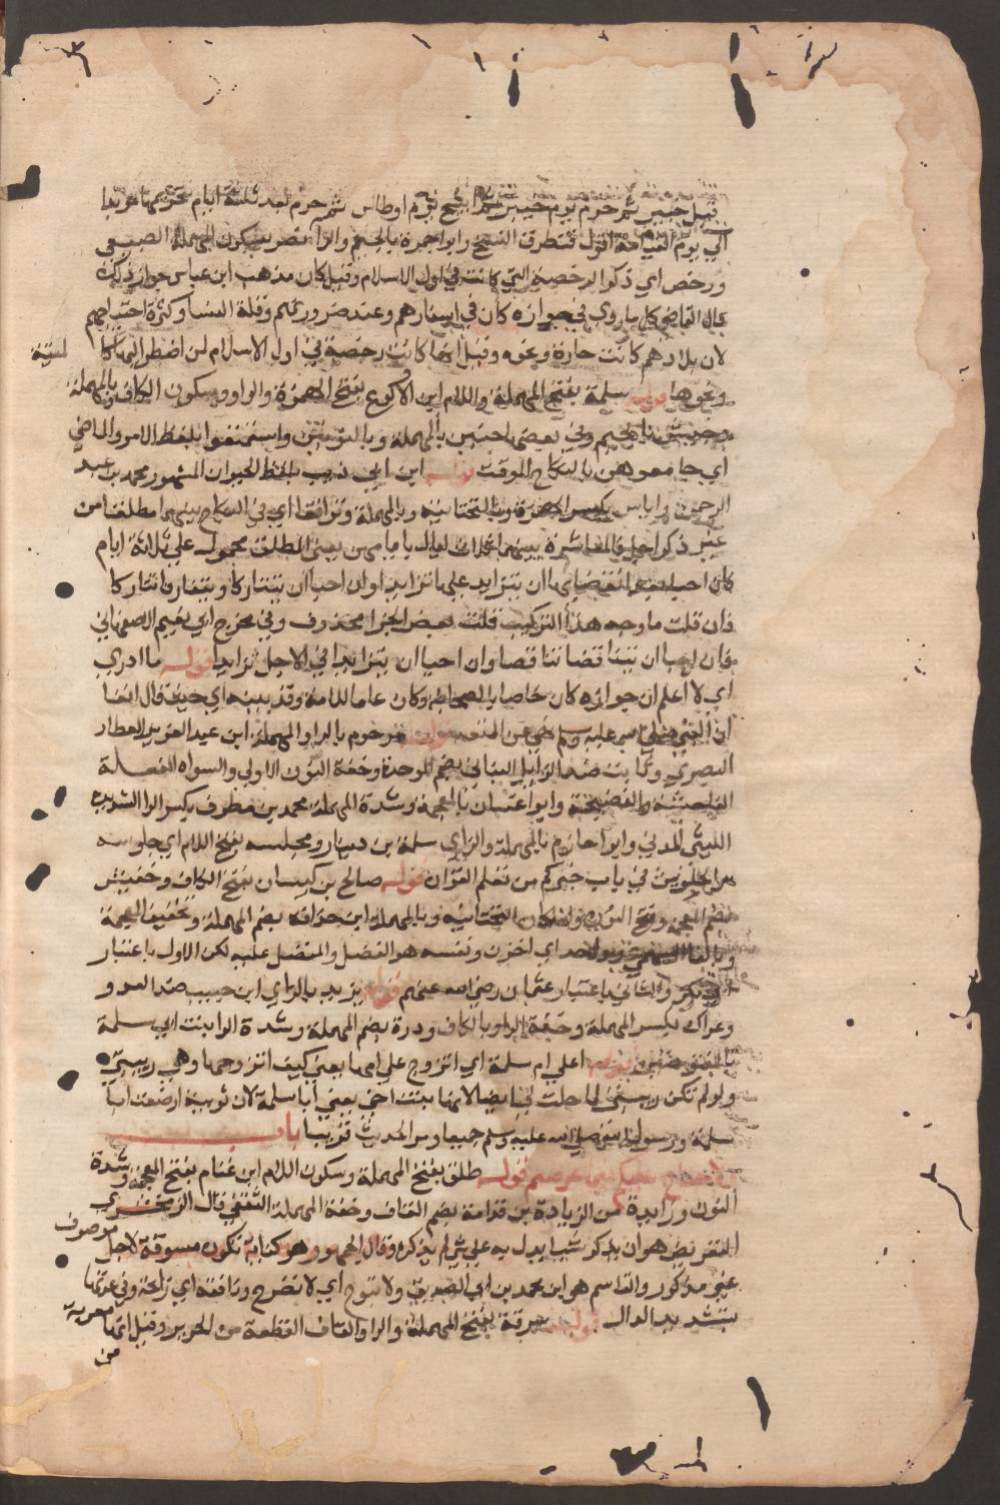 قبل خيبر ثم حرم يوم خيبر ثم ابيح يوم اوطاس ثم حرم بعد ثلثة ايام تحريما مؤبدا
الي يوم القيامة اقول فتطرق النسخ وابو جمرة بالجيم والراء نصر بسكون المهملة الضبعي
ورخص اي ذكر الرخصة التي كانت في اول الاسلام وقيل كان مذهب ابن عباس جواز ذلك
قال القاضي كل ما روي في جوازه كان في اسفارهم وعند ضرورتهم وقلة النسا وكثرة احتياجهم
لان بلادهم كانت حارة ونحوه وقيل انها كانت رخصة في اول الاسلام لمن اضطر اليها كالميتة
ونحوها قوله سلمة بفتح المهملة واللام ابن الاكوع بفتح الهمزة والواو وسكون الكاف وبالمهملة
جيش بالجيم وفي بعضها حنين بالمهملة وبالنونين واستمتعوا بلفظ الامر والماضي
اي جامعوهن بالنكاح الموقت قوله ابن ابي ذيب بلفظ الحيوان المشهور محمد بن عبد
الرحمن واياس بكسر الهمزة وبالتحتانية وبالمهملة وتوافقا اي في النكاح بينهما مطلقا من
غير ذكر اجل فالمعاشرة بينهما ثلاث ليال بايامهن يعني المطلق محمول علي ثلاثة ايام
فان احبا بعد انقضايها ان يتزايد علي ما تزايد او ان احبا ان يتتاركا ويتفارقا تتاركا
فان قلت ما وجه هذا التركيب قلت بعض الجزا محذوف وفي مخرج ابي نعيم الاصفهاني
فان احبا ان يتناقصا تناقصا وان احبا ان يتزايدا في الاجل تزايدا قوله ما ادري
اي لا اعلم ان جوازه كان خاصا بالصحابة وكان عاما للامة وقد بينه اي حيث قال انها
ان النبي صلي الله عليه وسلم نهي عن المتعة قوله مرحوم بالراء والمهملة ابن عبد العزيز العطار
البصري وثابت ضد الزايل البناني بضم الموحدة وخفة النون الاولي والسواه الفعلة
القبيحة والفضيحة وابو غسان بالمعجمة وشدة المهملة محمد بن مطرف بكسر الرا الشديدة
الليثي المدني وابو حازم بالمهملة والزاي سلمة بن دينار ومجلسه بفتح اللام اي جلوسه
مر الحديث في باب خيركم من تعلم القرآن قوله صالح بن كيسان بفتح الكاف وخنيس
بضم المعجمة وفتح النون وسكون التحتانية وبالمهملة ابن حذافة بضم المهملة وتخفيف المعجمة
وبالفاء السهمي واوجد اي احزن ونفسه هو المفضل والمفضل عليه لكن الاول باعتبار
ابي بكر والثاني باعتبار عثمان رضي الله عنهم قوله يزيد بالزاي ابن حبيب ضد العدو
وعراك بكسر المهملة وخفة الراء وبالكاف ودرة بضم المهملة وشدة الرا بنت ابي سلمة
قوله اعلي ام سلمة اي اتزوج علي امها يعني كيف اتزوجها وهي ربيبتي
ولو لم تكن ربيبتي لما حلت لي ايضا لانها بنت اخي يعني ابا سلمة لان ثويبة ارضعت ابا
سلمة ورسول الله صلي الله عليه وسلم جميعا ومر الحديث قريبا باب
ولا جناح عليكم فيما عرضتم قوله طلق بفتح المهملة وسكون اللام ابن غنام بفتح المعجمة وشدة
النون وزايدة من الزيادة بن قدامة بضم القاف وخفة المهملة الثقفي قال الزمخشري
التعريض هو ان يذكر شيا يدل به علي شي لم يذكره وقال الجمهور هو كناية تكون مسوقة لاجل موصوف
غير مذكور والقاسم هو ابن محمد بن ابي الصديق ولا تبوح اي لا تصرح ونافقة اي رايجة وفي عدتها
بتشديد الدال قوله سرقة بفتح المهملة والراء والقاف القطعة من الحرير وقيل انها معربة
من